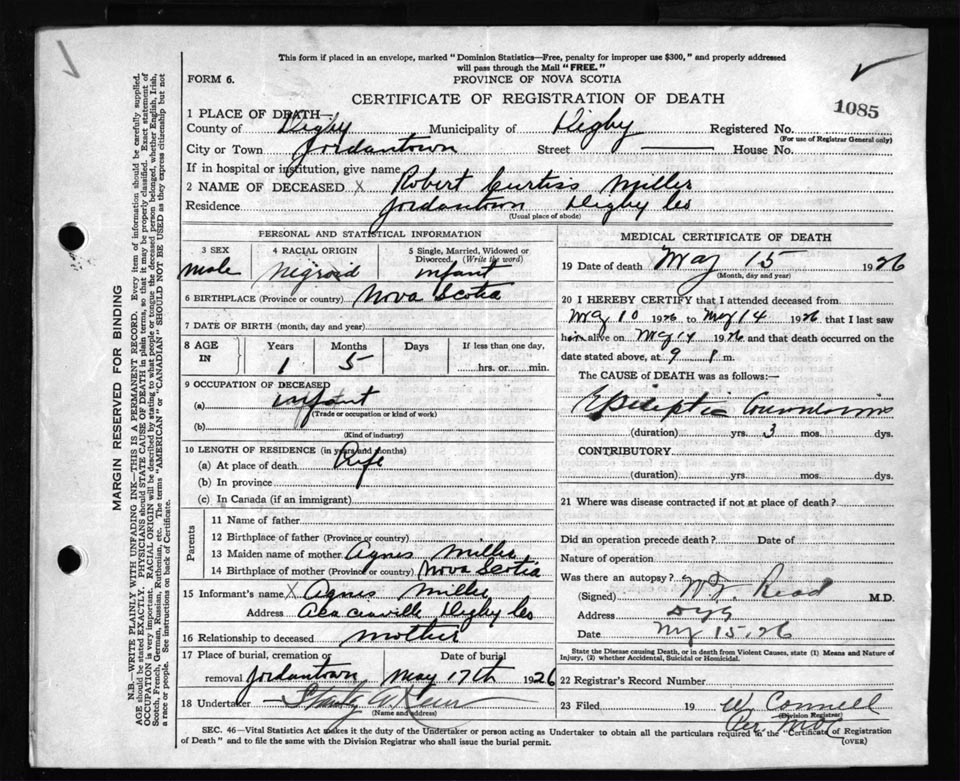 This form if placed in an envelope, marked "Dominion Statistics—Free, penalty for improper use $300," and properly addressed
will pass through the Mail "FREE."
FORM 6.
PROVINCE OF NOVA SCOTIA
CERTIFICATE OF REGISTRATION OF DEATH
1085
1 PLACE OF DEATH—
County of Digby Municipality of Digby Registered No.
(For use of Registrar General only)
City or Town Jordantown Street House No.
If in hospital or institution, give name
2 NAME OF DECEASED X Robert Curtiss Miller
Residence Jordantown Digby Co
(Usual place of abode)
PERSONAL AND STATISTICAL INFORMATION
3 SEX 4 RACIAL ORIGIN 5 Single, Married, Widowed or
Divorced. (Write the word)
male Negroid infant
6 BIRTHPLACE (Province or country) Nova Scotia
7 DATE OF BIRTH (month, day and year)
8 AGE IN Years Months Days If less than one day,
1 5 hrs. or min.
9 OCCUPATION OF DECEASED
(a) infant
(Trade or occupation or kind of work)
(b)
(Kind of industry)
10 LENGTH OF RESIDENCE (in years and months)
(a) At place of death Life
(b) In province
(c) In Canada (if an immigrant)
Parents
11 Name of father
12 Birthplace of father (Province or country)
13 Maiden name of mother Agnes Miller
14 Birthplace of mother (Province or country) Nova Scotia
15 Informant's name X Agnes Miller
Address Acaciaville Digby Co
16 Relationship to deceased mother
17 Place of burial, cremation or Date of burial
removal Jordantown May 17th 1926
18 Undertaker
(Name and address)
MEDICAL CERTIFICATE OF DEATH
19 Date of death May 15 1926
(Month, day and year)
20 I HEREBY CERTIFY that I attended deceased from
May 10 1926 to May 14 1926 that I last saw
him alive on May 14 1926 and that death occurred on the
date stated above, at 9 m.
The CAUSE OF DEATH was as follows:—
Epileptic Convulsions
(duration) yrs. 3 mos. dys.
CONTRIBUTORY
(duration) yrs. mos. dys.
21 Where was disease contracted if not at place of death?
Did an operation precede death? Date of
Nature of operation
Was there an autopsy?
(Signed) Read M.D.
Address
Date May 15, 26
State the Disease causing Death, or in death from Violent Causes, state (1) Means and Nature of
Injury, (2) whether Accidental, Suicidal or Homicidal.
22 Registrar's Record Number
23 Filed 19 W Connell
(Division Registrar)
Per
SEC. 46—Vital Statistics Act makes it the duty of the Undertaker or person acting as Undertaker to obtain all the particulars required in the "Certificate of Registration
of Death" and to file the same with the Division Registrar who shall issue the burial permit.
(OVER)
MARGIN RESERVED FOR BINDING
N.B.—WRITE PLAINLY WITH UNFADING INK—THIS IS A PERMANENT RECORD. Every item of information should be carefully supplied.
AGE should be stated EXACTLY. PHYSICIANS should STATE CAUSE OF DEATH in plain terms, so that it may be properly classified. Exact statement of
OCCUPATION is very important. RACIAL ORIGIN will be described by stating to what people or tongue the deceased person belonged, whether English, Irish,
Scotch, French, German, Russian, Ruthenian, etc. The terms "AMERICAN" or "CANADIAN" SHOULD NOT BE USED as they express citizenship but not
a race or people. See instructions on back of Certificate.